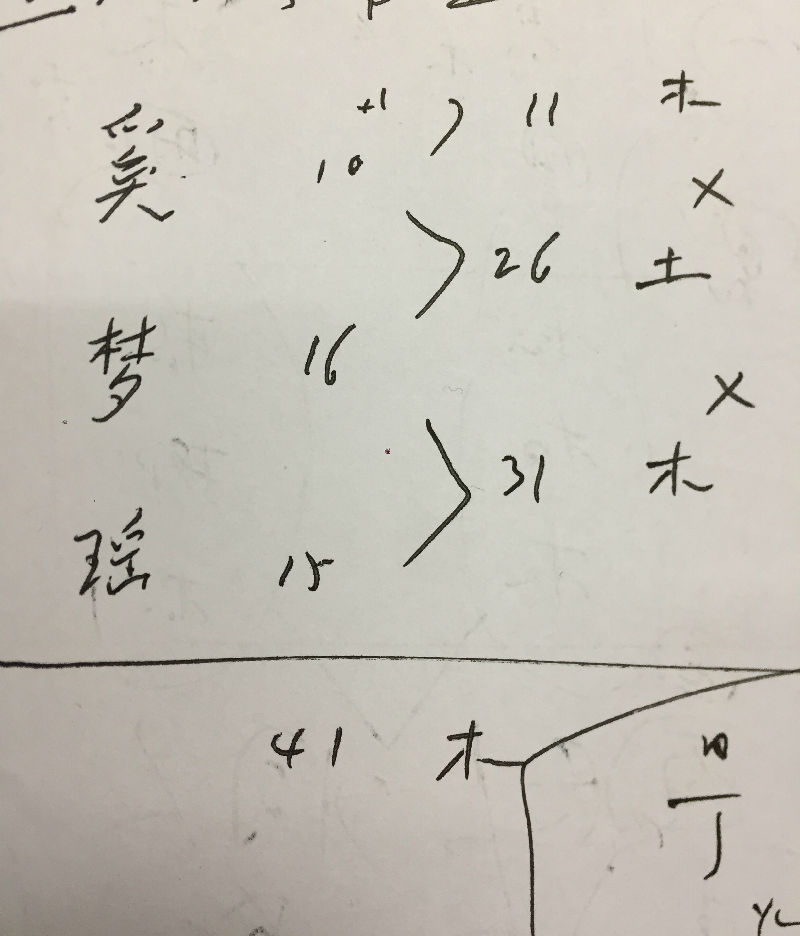 +1 11 木
奚 10 ×
26 土
梦 16 ×
31 木
瑶 15
41 木